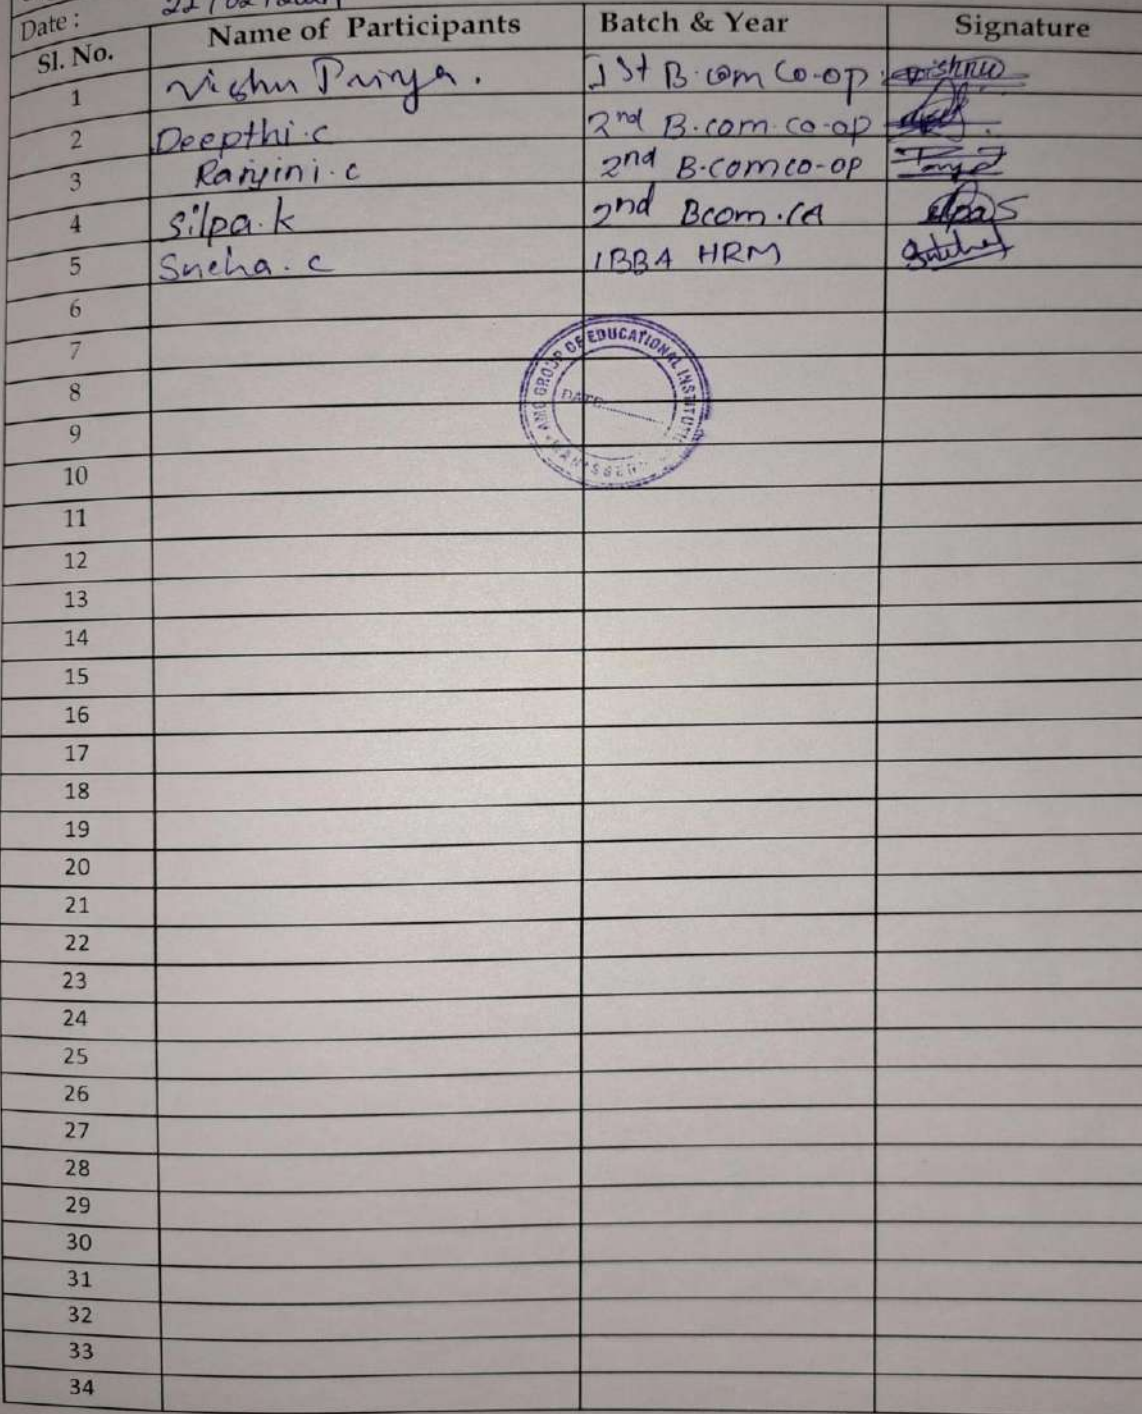 Date :
Sl. No. Name of Participants Batch & Year Signature
1 Vishnu Priya. 1st B.com Co-op vishnu
2 Deepthi.c 2nd B.com.co-op
3 Ranjini.c 2nd B.com co-op
4 Silpa.k 2nd Bcom.CA
5 Sneha.c 1 BBA HRM
6
7
8
9
10
11
12
13
14
15
16
17
18
19
20
21
22
23
24
25
26
27
28
29
30
31
32
33
34
AMC GROUP OF EDUCATIONAL INSTITUTI
DATE